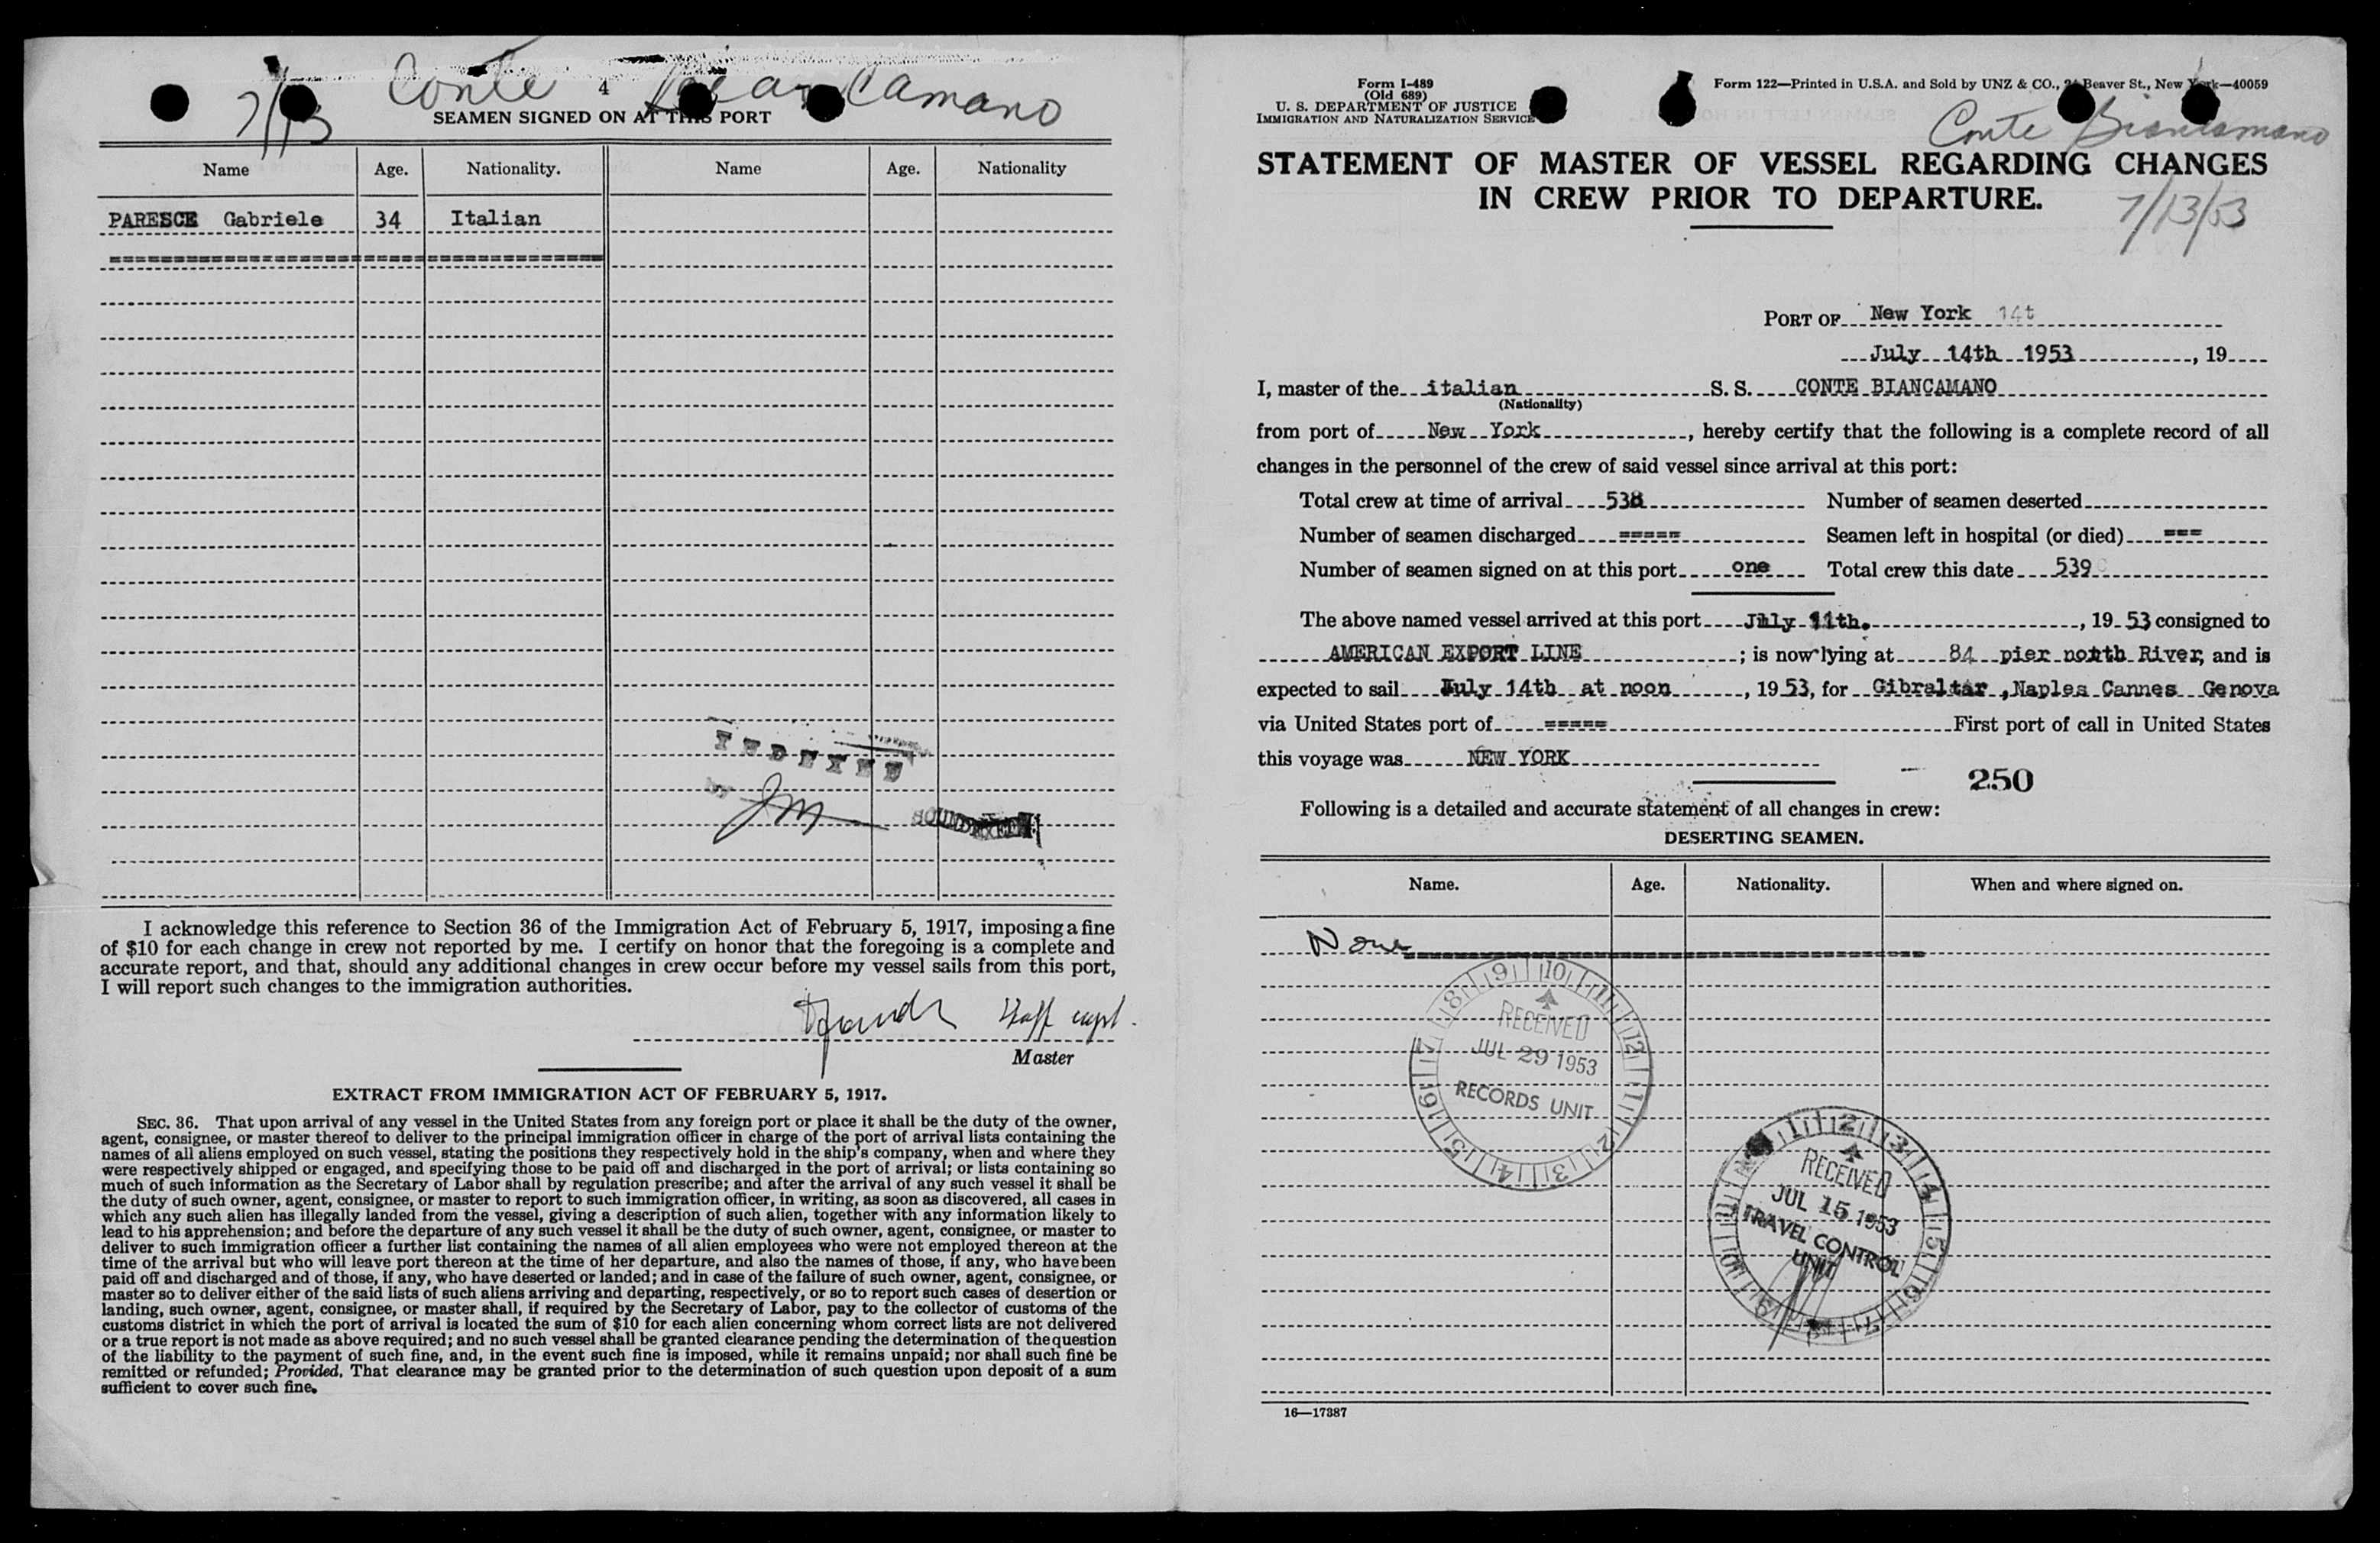 Conte Biancamano
7/13
4
SEAMEN SIGNED ON AT THIS PORT
Name Age. Nationality. Name Age. Nationality
PARESCE Gabriele 34 Italian
INDEXED
BY JM
SOUNDEXED
I acknowledge this reference to Section 36 of the Immigration Act of February 5, 1917, imposing a fine
of $10 for each change in crew not reported by me. I certify on honor that the foregoing is a complete and
accurate report, and that, should any additional changes in crew occur before my vessel sails from this port,
I will report such changes to the immigration authorities.
Staff capt.
Master
EXTRACT FROM IMMIGRATION ACT OF FEBRUARY 5, 1917.
SEC. 36. That upon arrival of any vessel in the United States from any foreign port or place it shall be the duty of the owner,
agent, consignee, or master thereof to deliver to the principal immigration officer in charge of the port of arrival lists containing the
names of all aliens employed on such vessel, stating the positions they respectively hold in the ship's company, when and where they
were respectively shipped or engaged, and specifying those to be paid off and discharged in the port of arrival; or lists containing so
much of such information as the Secretary of Labor shall by regulation prescribe; and after the arrival of any such vessel it shall be
the duty of such owner, agent, consignee, or master to report to such immigration officer, in writing, as soon as discovered, all cases in
which any such alien has illegally landed from the vessel, giving a description of such alien, together with any information likely to
lead to his apprehension; and before the departure of any such vessel it shall be the duty of such owner, agent, consignee, or master to
deliver to such immigration officer a further list containing the names of all alien employees who were not employed thereon at the
time of the arrival but who will leave port thereon at the time of her departure, and also the names of those, if any, who have been
paid off and discharged and of those, if any, who have deserted or landed; and in case of the failure of such owner, agent, consignee, or
master so to deliver either of the said lists of such aliens arriving and departing, respectively, or so to report such cases of desertion or
landing, such owner, agent, consignee, or master shall, if required by the Secretary of Labor, pay to the collector of customs of the
customs district in which the port of arrival is located the sum of $10 for each alien concerning whom correct lists are not delivered
or a true report is not made as above required; and no such vessel shall be granted clearance pending the determination of the question
of the liability to the payment of such fine, and, in the event such fine is imposed, while it remains unpaid; nor shall such fine be
remitted or refunded; Provided, That clearance may be granted prior to the determination of such question upon deposit of a sum
sufficient to cover such fine.
Form I-489
(Old 689)
U. S. DEPARTMENT OF JUSTICE
IMMIGRATION AND NATURALIZATION SERVICE
Form 122—Printed in U.S.A. and Sold by UNZ & CO., Beaver St., New York—40059
Conte Biancamano
STATEMENT OF MASTER OF VESSEL REGARDING CHANGES
IN CREW PRIOR TO DEPARTURE.
7/13/53
PORT OF New York 14t
July 14th 1953, 19
I, master of the italian S. S. CONTE BIANCAMANO
(Nationality)
from port of New York, hereby certify that the following is a complete record of all
changes in the personnel of the crew of said vessel since arrival at this port:
Total crew at time of arrival 538 Number of seamen deserted
Number of seamen discharged ===== Seamen left in hospital (or died) ===
Number of seamen signed on at this port one Total crew this date 539
The above named vessel arrived at this port July 11th., 19 53 consigned to
AMERICAN EXPORT LINE; is now lying at 84 pier north River, and is
expected to sail July 14th at noon, 19 53, for Gibraltar ,Naples Cannes Genova
via United States port of ===== First port of call in United States
this voyage was NEW YORK
250
Following is a detailed and accurate statement of all changes in crew:
DESERTING SEAMEN.
Name. Age. Nationality. When and where signed on.
None
RECEIVED
JUL 29 1953
RECORDS UNIT
RECEIVED
JUL 15 1953
TRAVEL CONTROL
UNIT
16—17387